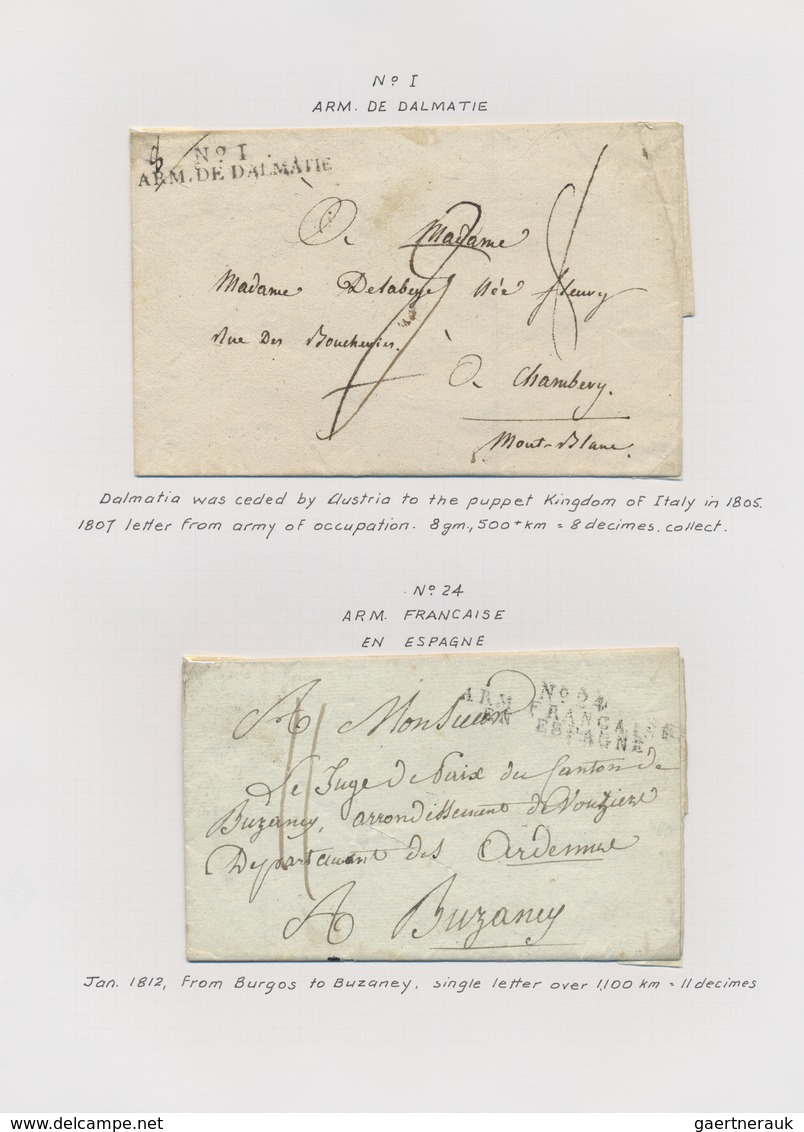 Nº I
ARM. DE DALMATIE
8
Nº I
ARM. DE DALMATIE
A Madame
Madame Delabeye née fleury
Rue Des Boucheries.
8
A Chambery.
Mont-Blanc.
Dalmatia was ceded by Austria to the puppet Kingdom of Italy in 1805.
1807 letter from army of occupation. 8gm., 500+km = 8 decimes, collect.
Nº 24
ARM. FRANCAISE
EN ESPAGNE
Nº 24
ARM. FRANCAISE
EN ESPAGNE
11
A Monsieur
Le Juge de Paix du Canton de
Buzancy, arrondissement de Vouziere
Departement des Ardennes
A Buzancy
Jan. 1812, From Burgos to Buzaney, single letter over 1,100 km = 11 decimes
www.delcampe.net
gaertnerauk